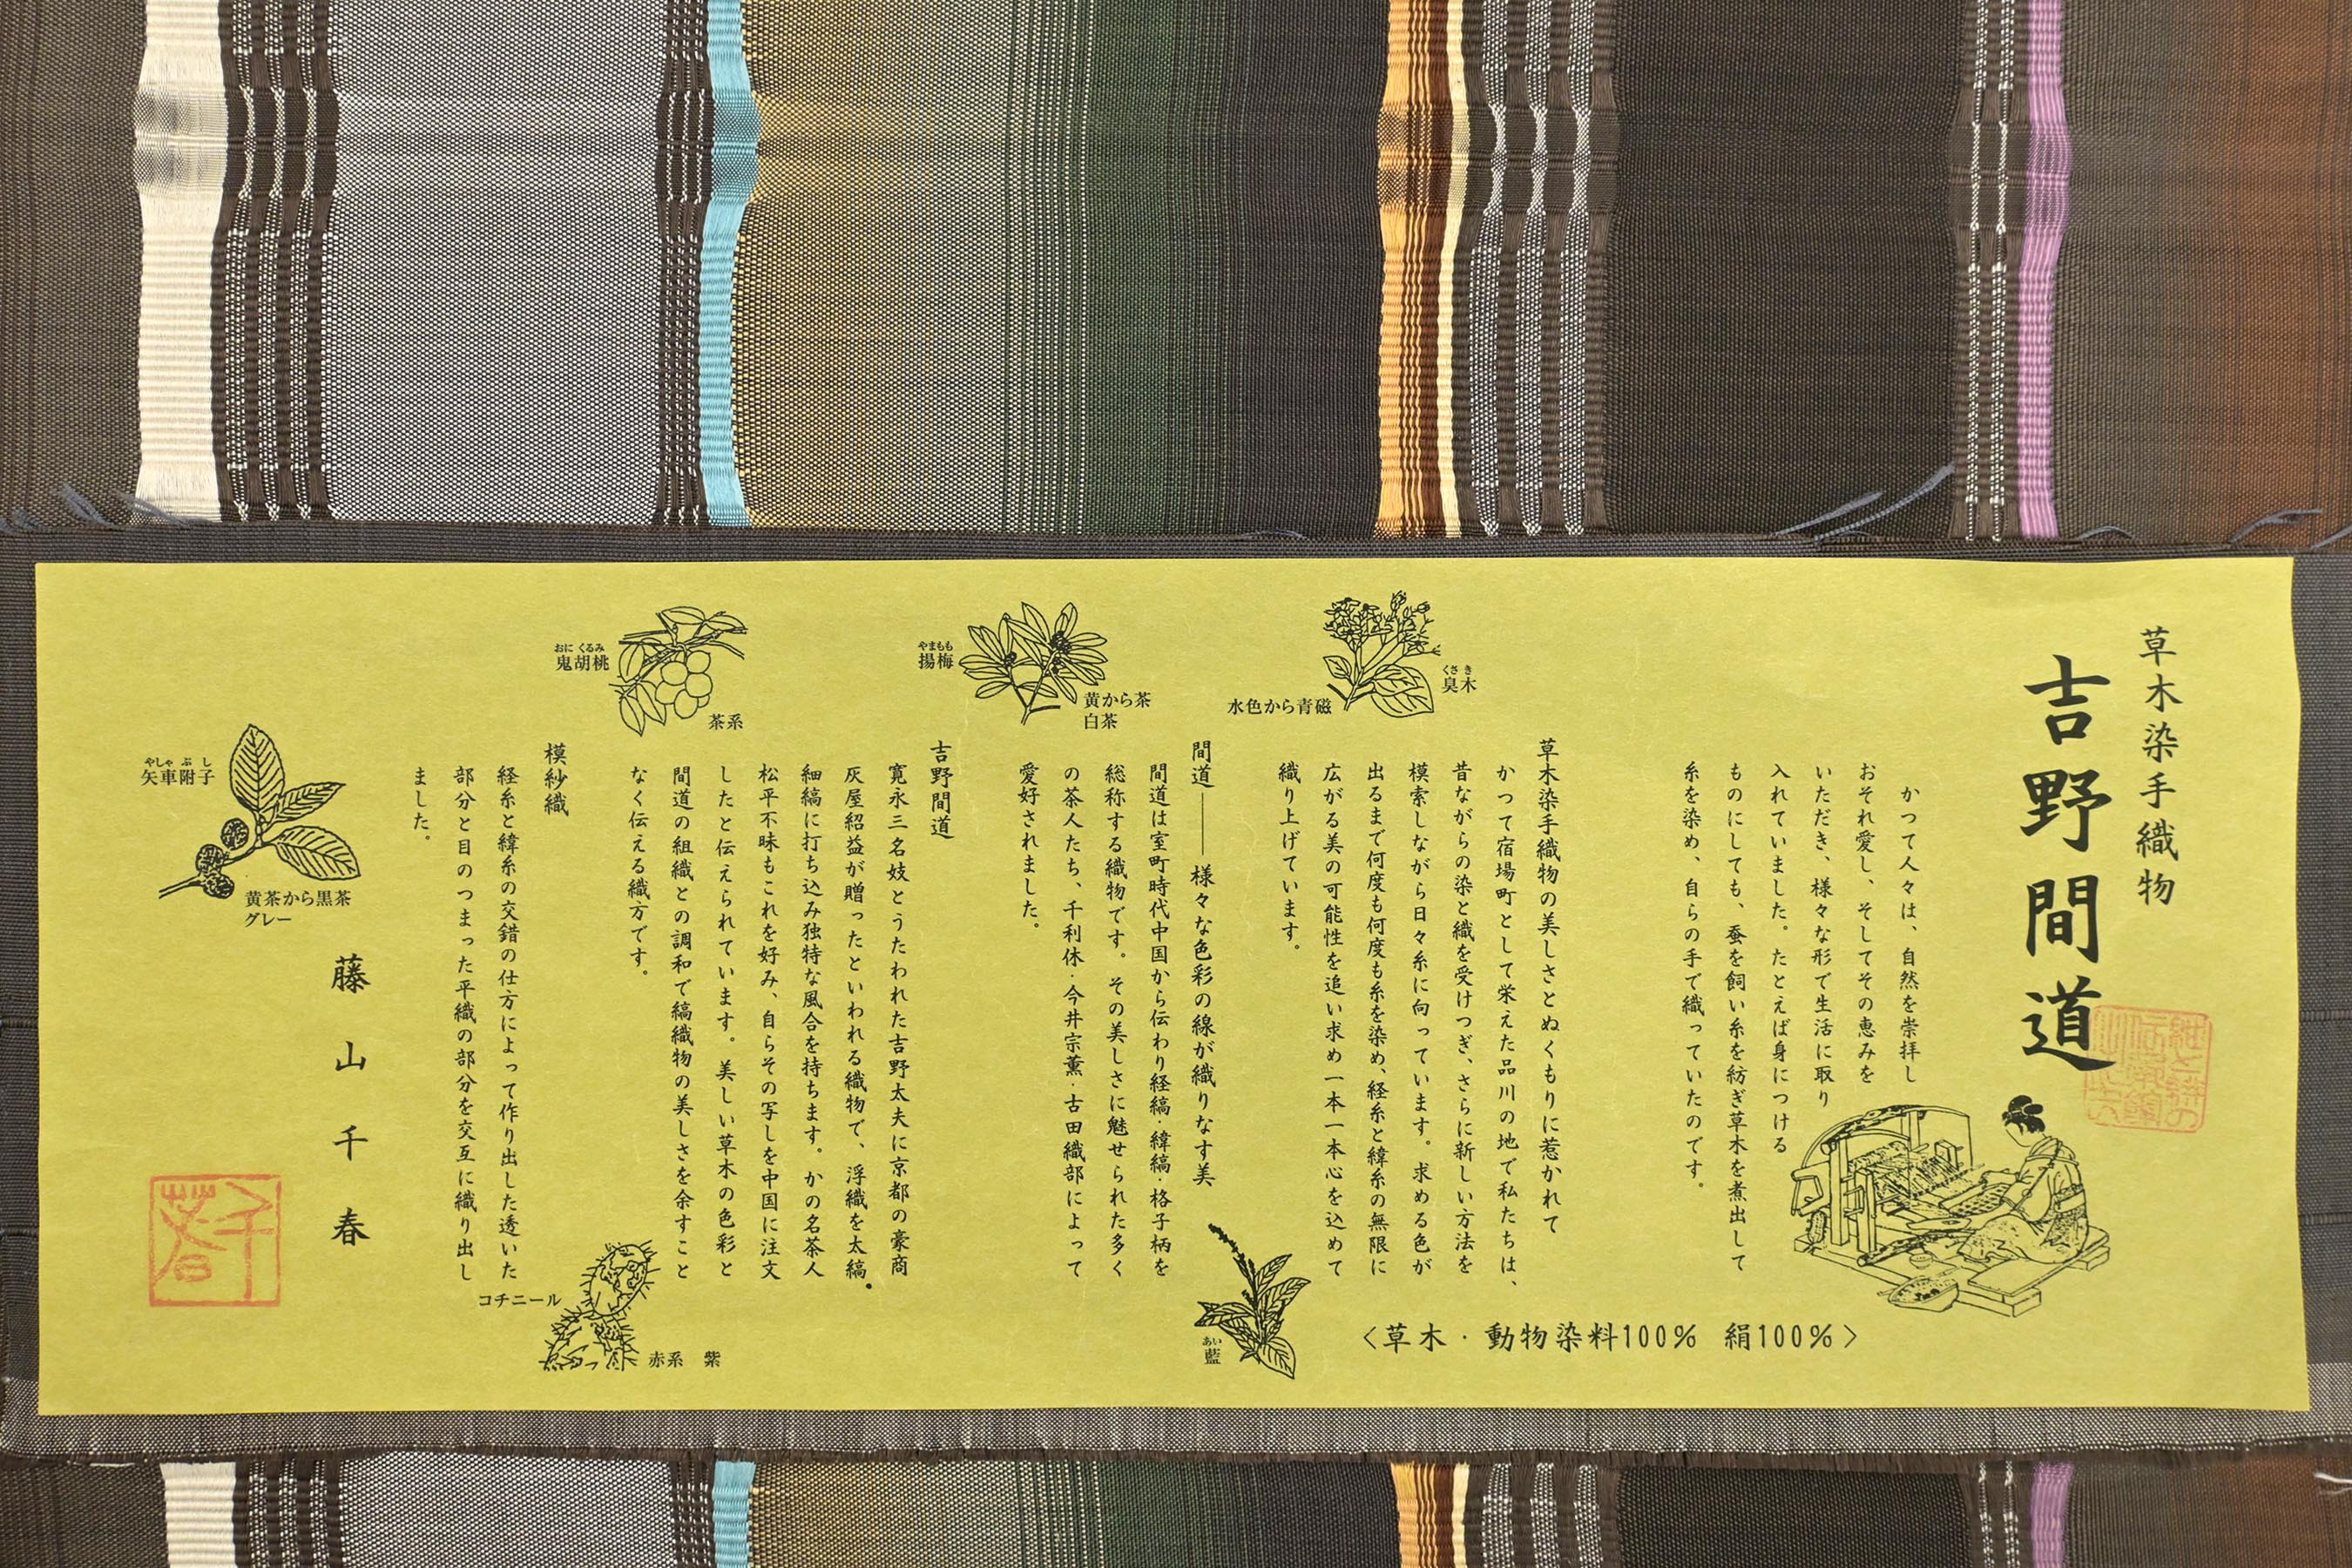 草木染手織物
吉野間道
かつて人々は、自然を崇拝し
おそれ愛し、そしてその恵みを
いただき、様々な形で生活に取り
入れていました。たとえば身につける
ものにしても、蚕を飼い糸を紡ぎ草木を煮出して
糸を染め、自らの手で織っていたのです。
草木染手織物の美しさとぬくもりに惹かれて
かつて宿場町として栄えた品川の地で私たちは、
昔ながらの染と織を受けつぎ、さらに新しい方法を
模索しながら日々糸に向っています。求める色が
出るまで何度も何度も糸を染め、経糸と緯糸の無限に
広がる美の可能性を追い求め一本一本心を込めて
織り上げています。
〈草木・動物染料100% 絹100%〉
くさき
臭木
水色から青磁
間道――様々な色彩の線が織りなす美
間道は室町時代中国から伝わり経縞・緯縞・格子柄を
総称する織物です。その美しさに魅せられた多く
の茶人たち、千利休・今井宗薫・古田織部によって
愛好されました。
あい
藍
やまもも
揚梅
黄から茶
白茶
吉野間道
寛永三名妓とうたわれた吉野太夫に京都の豪商
灰屋紹益が贈ったといわれる織物で、浮織を太縞
細縞に打ち込み独特な風合を持ちます。かの名茶人
松平不昧もこれを好み、自らその写しを中国に注文
したと伝えられています。美しい草木の色彩と
間道の組織との調和で縞織物の美しさを余すこと
なく伝える織方です。
おにくるみ
鬼胡桃
茶系
模紗織
経糸と緯糸の交錯の仕方によって作り出した透いた
部分と目のつまった平織の部分を交互に織り出し
ました。
コチニール
赤系 紫
やしゃぶし
矢車附子
黄茶から黒茶
グレー
藤山千春
千春